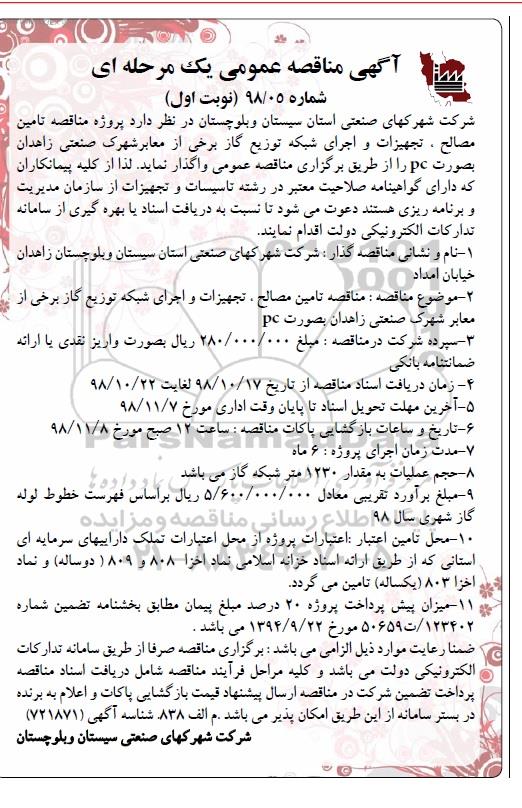 آگهی مناقصه عمومی یک مرحله ای
شماره ۹۸/۰۵ (نوبت اول)
شرکت شهرکهای صنعتی استان سیستان وبلوچستان در نظر دارد پروژه مناقصه تامین
مصالح ، تجهیزات و اجرای شبکه توزیع گاز برخی از معابرشهرک صنعتی زاهدان
بصورت pc را از طریق برگزاری مناقصه عمومی واگذار نماید. لذا از کلیه پیمانکاران
که دارای گواهینامه صلاحیت معتبر در رشته تاسیسات و تجهیزات از سازمان مدیریت
و برنامه ریزی هستند دعوت می شود تا نسبت به دریافت اسناد یا بهره گیری از سامانه
تدارکات الکترونیکی دولت اقدام نمایند.
۱-نام و نشانی مناقصه گذار : شرکت شهرکهای صنعتی استان سیستان وبلوچستان زاهدان
خیابان امداد
۲-موضوع مناقصه : مناقصه تامین مصالح ، تجهیزات و اجرای شبکه توزیع گاز برخی از
معابر شهرک صنعتی زاهدان بصورت pc
۳-سپرده شرکت درمناقصه : مبلغ ۲۸۰/۰۰۰/۰۰۰ ریال بصورت واریز نقدی یا ارائه
ضمانتنامه بانکی
۴- زمان دریافت اسناد مناقصه از تاریخ ۹۸/۱۰/۱۷ لغایت ۹۸/۱۰/۲۲
۵-آخرین مهلت تحویل اسناد تا پایان وقت اداری مورخ ۹۸/۱۱/۷
۶-تاریخ و ساعات بازگشایی پاکات مناقصه : ساعت ۱۲ صبح مورخ ۹۸/۱۱/۸
۷-مدت زمان اجرای پروژه : ۶ ماه
۸-حجم عملیات به مقدار ۱۲۳۰ متر شبکه گاز می باشد
۹-مبلغ برآورد تقریبی معادل ۵/۶۰۰/۰۰۰/۰۰۰ ریال براساس فهرست خطوط لوله
گاز شهری سال ۹۸
۱۰-محل تامین اعتبار :اعتبارات پروژه از محل اعتبارات تملک داراییهای سرمایه ای
استانی که از طریق ارائه اسناد خزانه اسلامی نماد اخزا ۸۰۸ و ۸۰۹ ( دوساله) و نماد
اخزا ۸۰۳ (یکساله) تامین می گردد.
۱۱-میزان پیش پرداخت پروژه ۲۰ درصد مبلغ پیمان مطابق بخشنامه تضمین شماره
۱۲۳۴۰۲/ت۵۰۶۵۹ مورخ ۱۳۹۴/۹/۲۲ می باشد .
ضمنا رعایت موارد ذیل الزامی می باشد : برگزاری مناقصه صرفا از طریق سامانه تدارکات
الکترونیکی دولت می باشد و کلیه مراحل فرآیند مناقصه شامل دریافت اسناد مناقصه
پرداخت تضمین شرکت در مناقصه ارسال پیشنهاد قیمت بازگشایی پاکات و اعلام به برنده
در بستر سامانه از این طریق امکان پذیر می باشد .م الف ۸۳۸. شناسه آگهی (۷۲۱۸۷۱)
شرکت شهرکهای صنعتی سیستان وبلوچستان